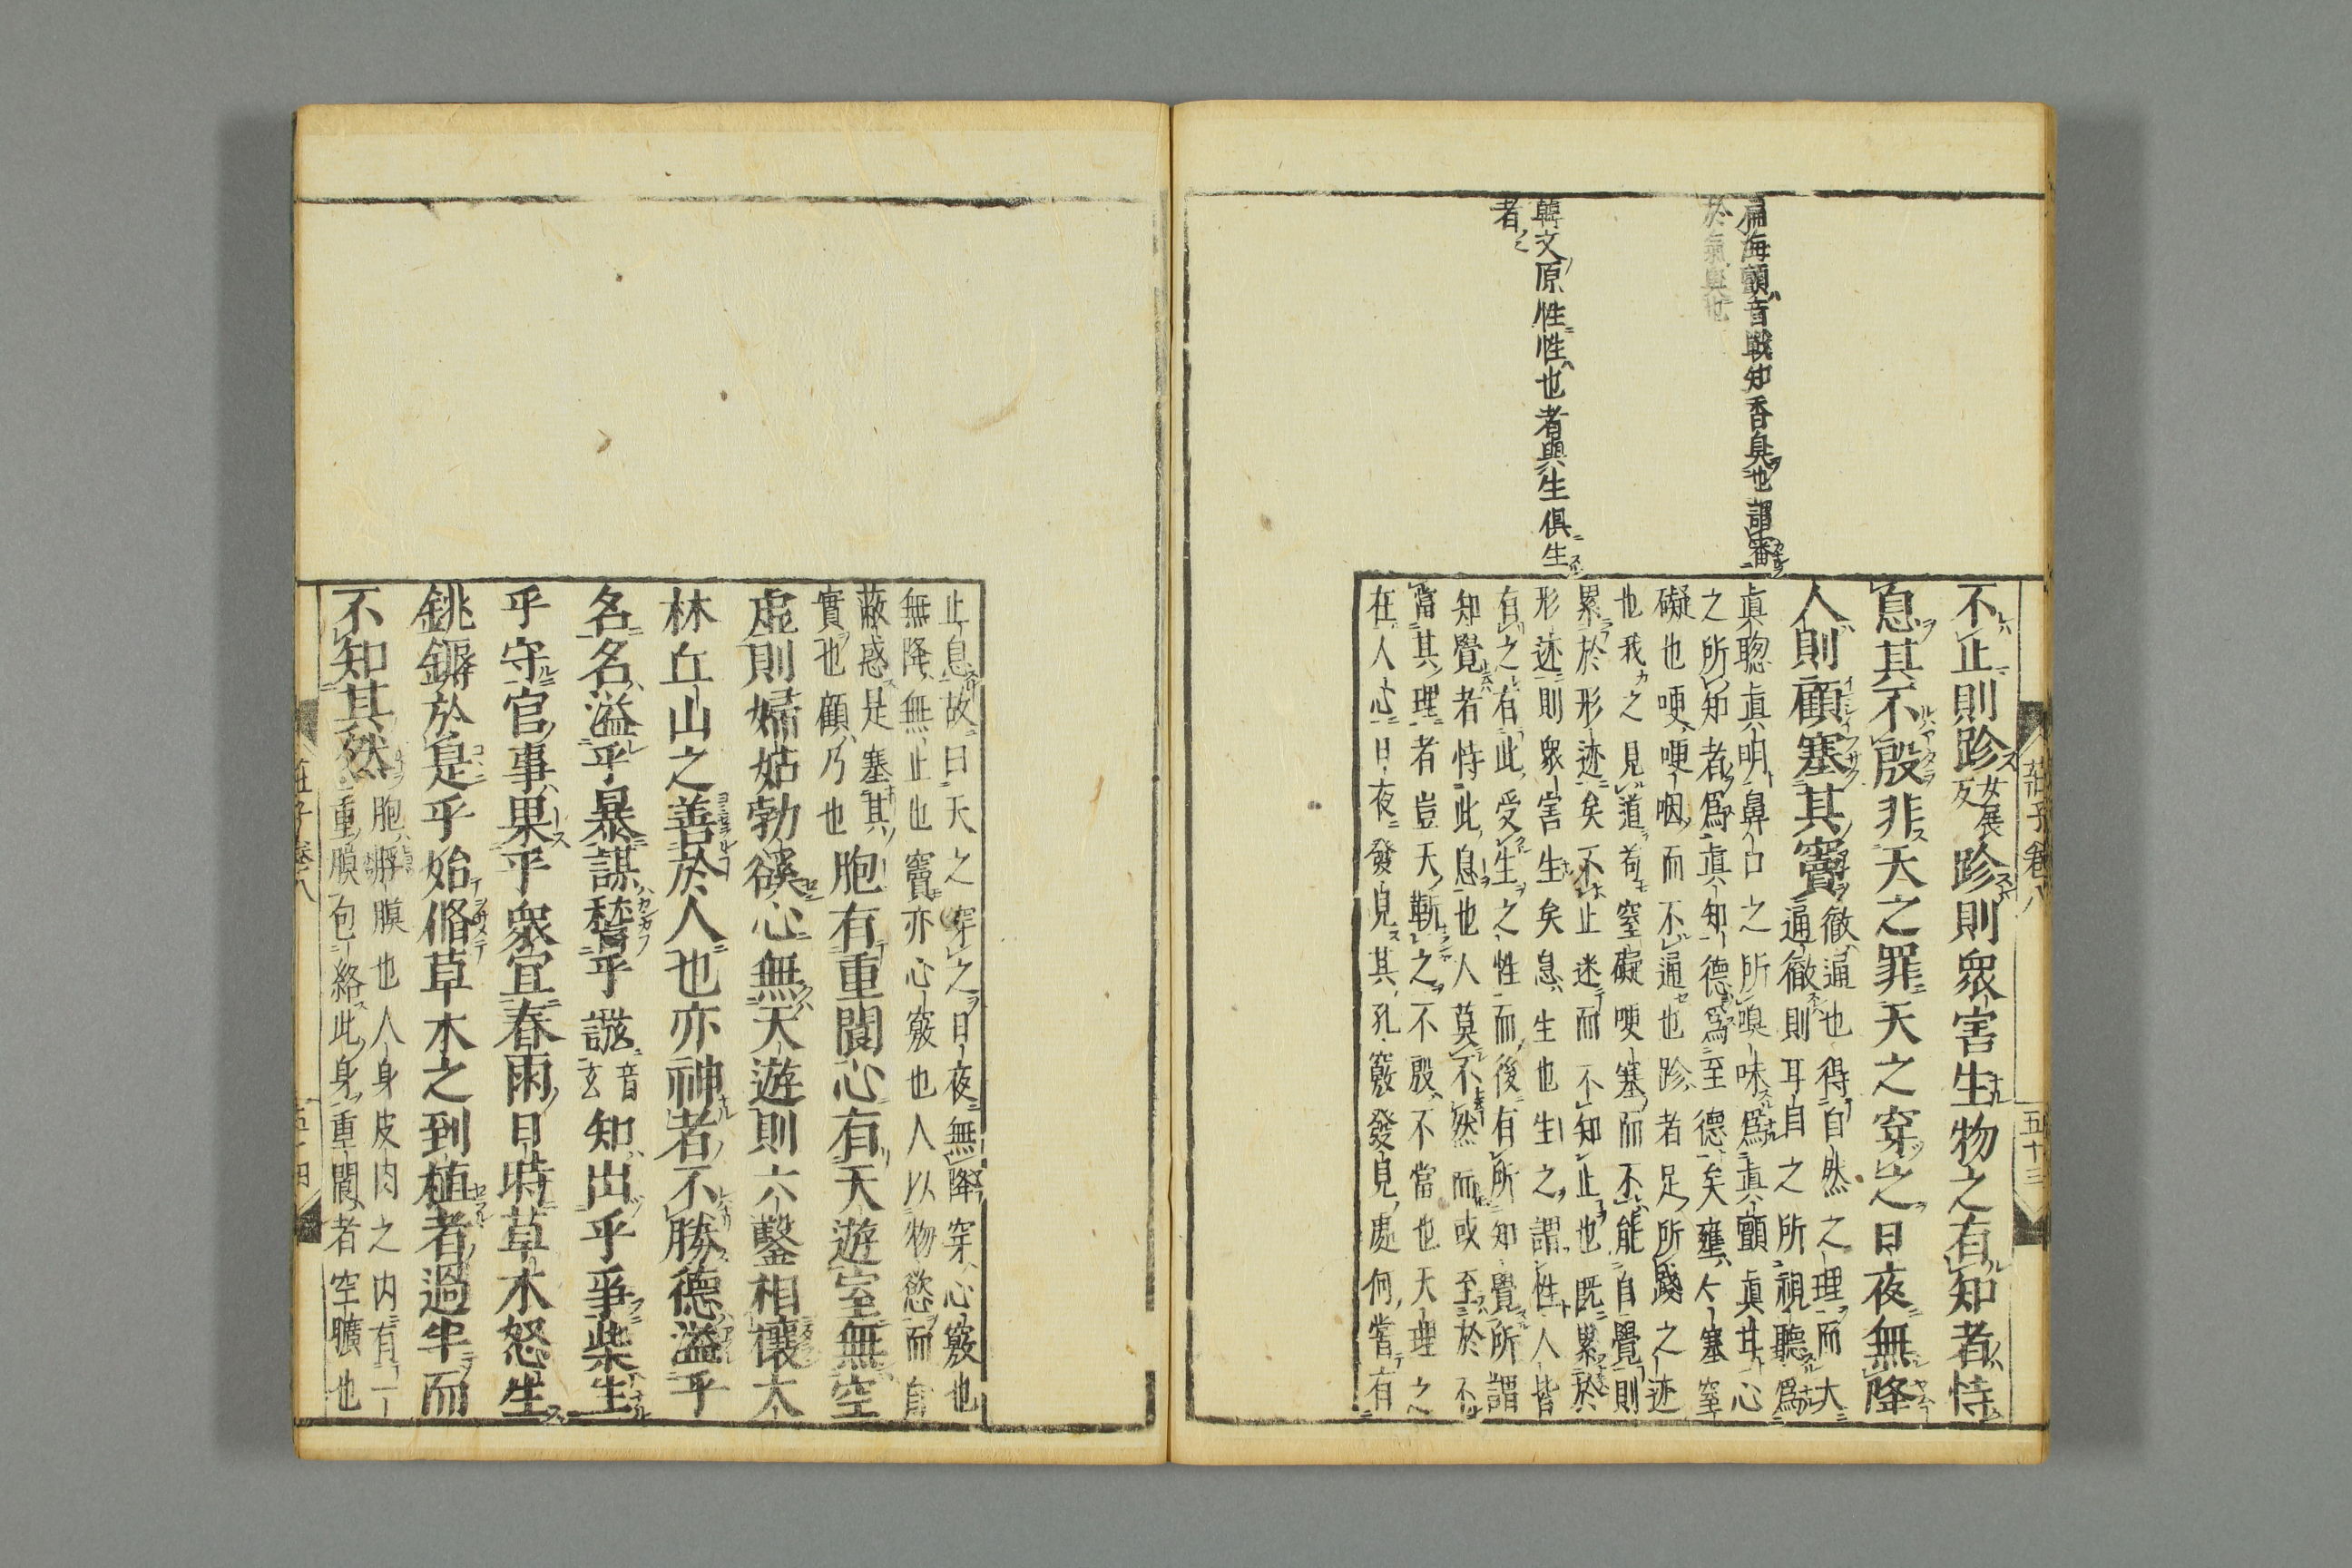 莊子卷八
五十三
篇海顫音戰知香臭也謂審
於氣臭也
韓文原性性也者與生俱生
者
不止則跈女展反跈則衆害生物之有知者恃
息其不殷非天之罪天之穿之日夜無降
人則顧塞其竇徹通也得自然之理而大
通徹則耳自之所視聽爲
眞聰眞明鼻口之所嗅味爲眞顫眞甘心
之所知者爲眞知德爲至德矣壅塞窒
礙也哽哽咽而不通也跈者足所踐之迹
也我之見道苟窒礙哽塞而不能自覺則
累於形迹矣不止迷而不知止也既累於
形迹則衆害生矣息生也生之謂性人皆
有之有此受生之性而後有所知覺所謂
知覺者恃此息也人莫不然而或至於不
當其理者豈天靳之不殷不當也天理之
在人心日夜發見其孔竅發見處何嘗有
止息故曰天之穿之日夜無降穿心竅也
無降無止也竇亦心竅也人以物慾而自
蔽惑是塞其
實也顧乃也胞有重閬心有天遊室無空
虛則婦姑勃豀心無天遊則六鑿相攘大
林丘山之善於人也亦神者不勝德溢乎
名名溢乎暴謀稽乎誸音玄知出乎爭柴生
乎守官事果乎衆宜春雨日時草木怒生
銚鎒於是乎始脩草木之到植者過半而
不知其然胞膜也人身皮肉之内有一
重膜包絡此身重閬者空曠也
莊子卷八
五十四